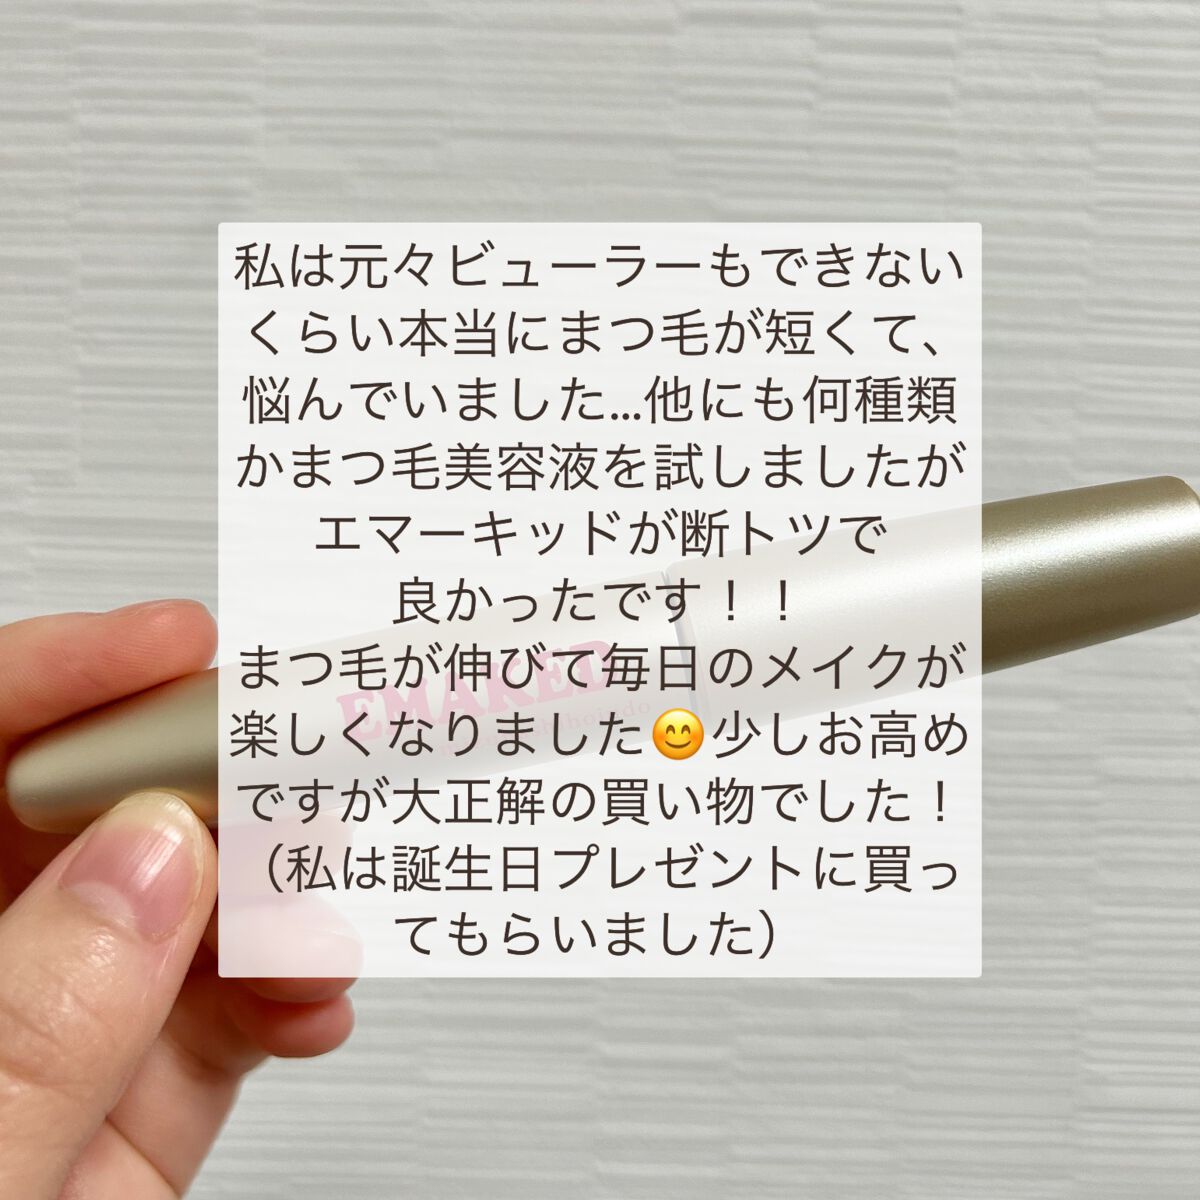 私は元々ビューラーもできない
くらい本当にまつ毛が短くて、
悩んでいました…他にも何種類
かまつ毛美容液を試しましたが
エマーキッドが断トツで
良かったです！！
まつ毛が伸びて毎日のメイクが
楽しくなりました😊少しお高め
ですが大正解の買い物でした！
（私は誕生日プレゼントに買っ
てもらいました）
EMAKED